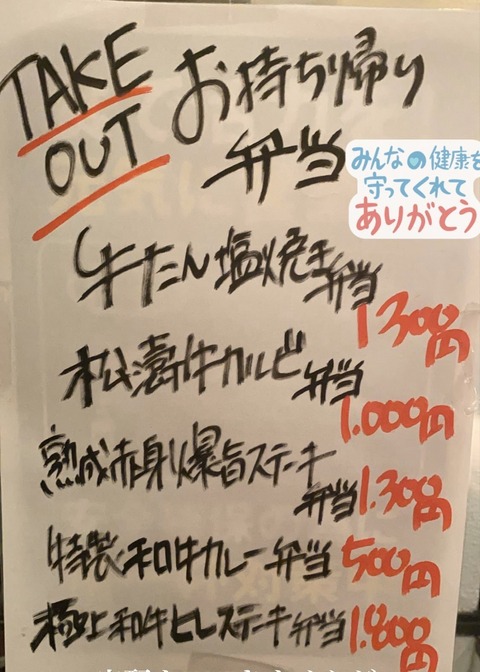 TAKE
OUT
お持ち帰り
弁当
みんなの健康を
守ってくれて
ありがとう
牛たん塩焼き弁当
1300円
松濤牛カルビ弁当
1.000円
熟成赤身爆旨ステーキ
弁当 1.300円
特製和牛カレー弁当 500円
極上和牛ヒレステーキ弁当 1.800円